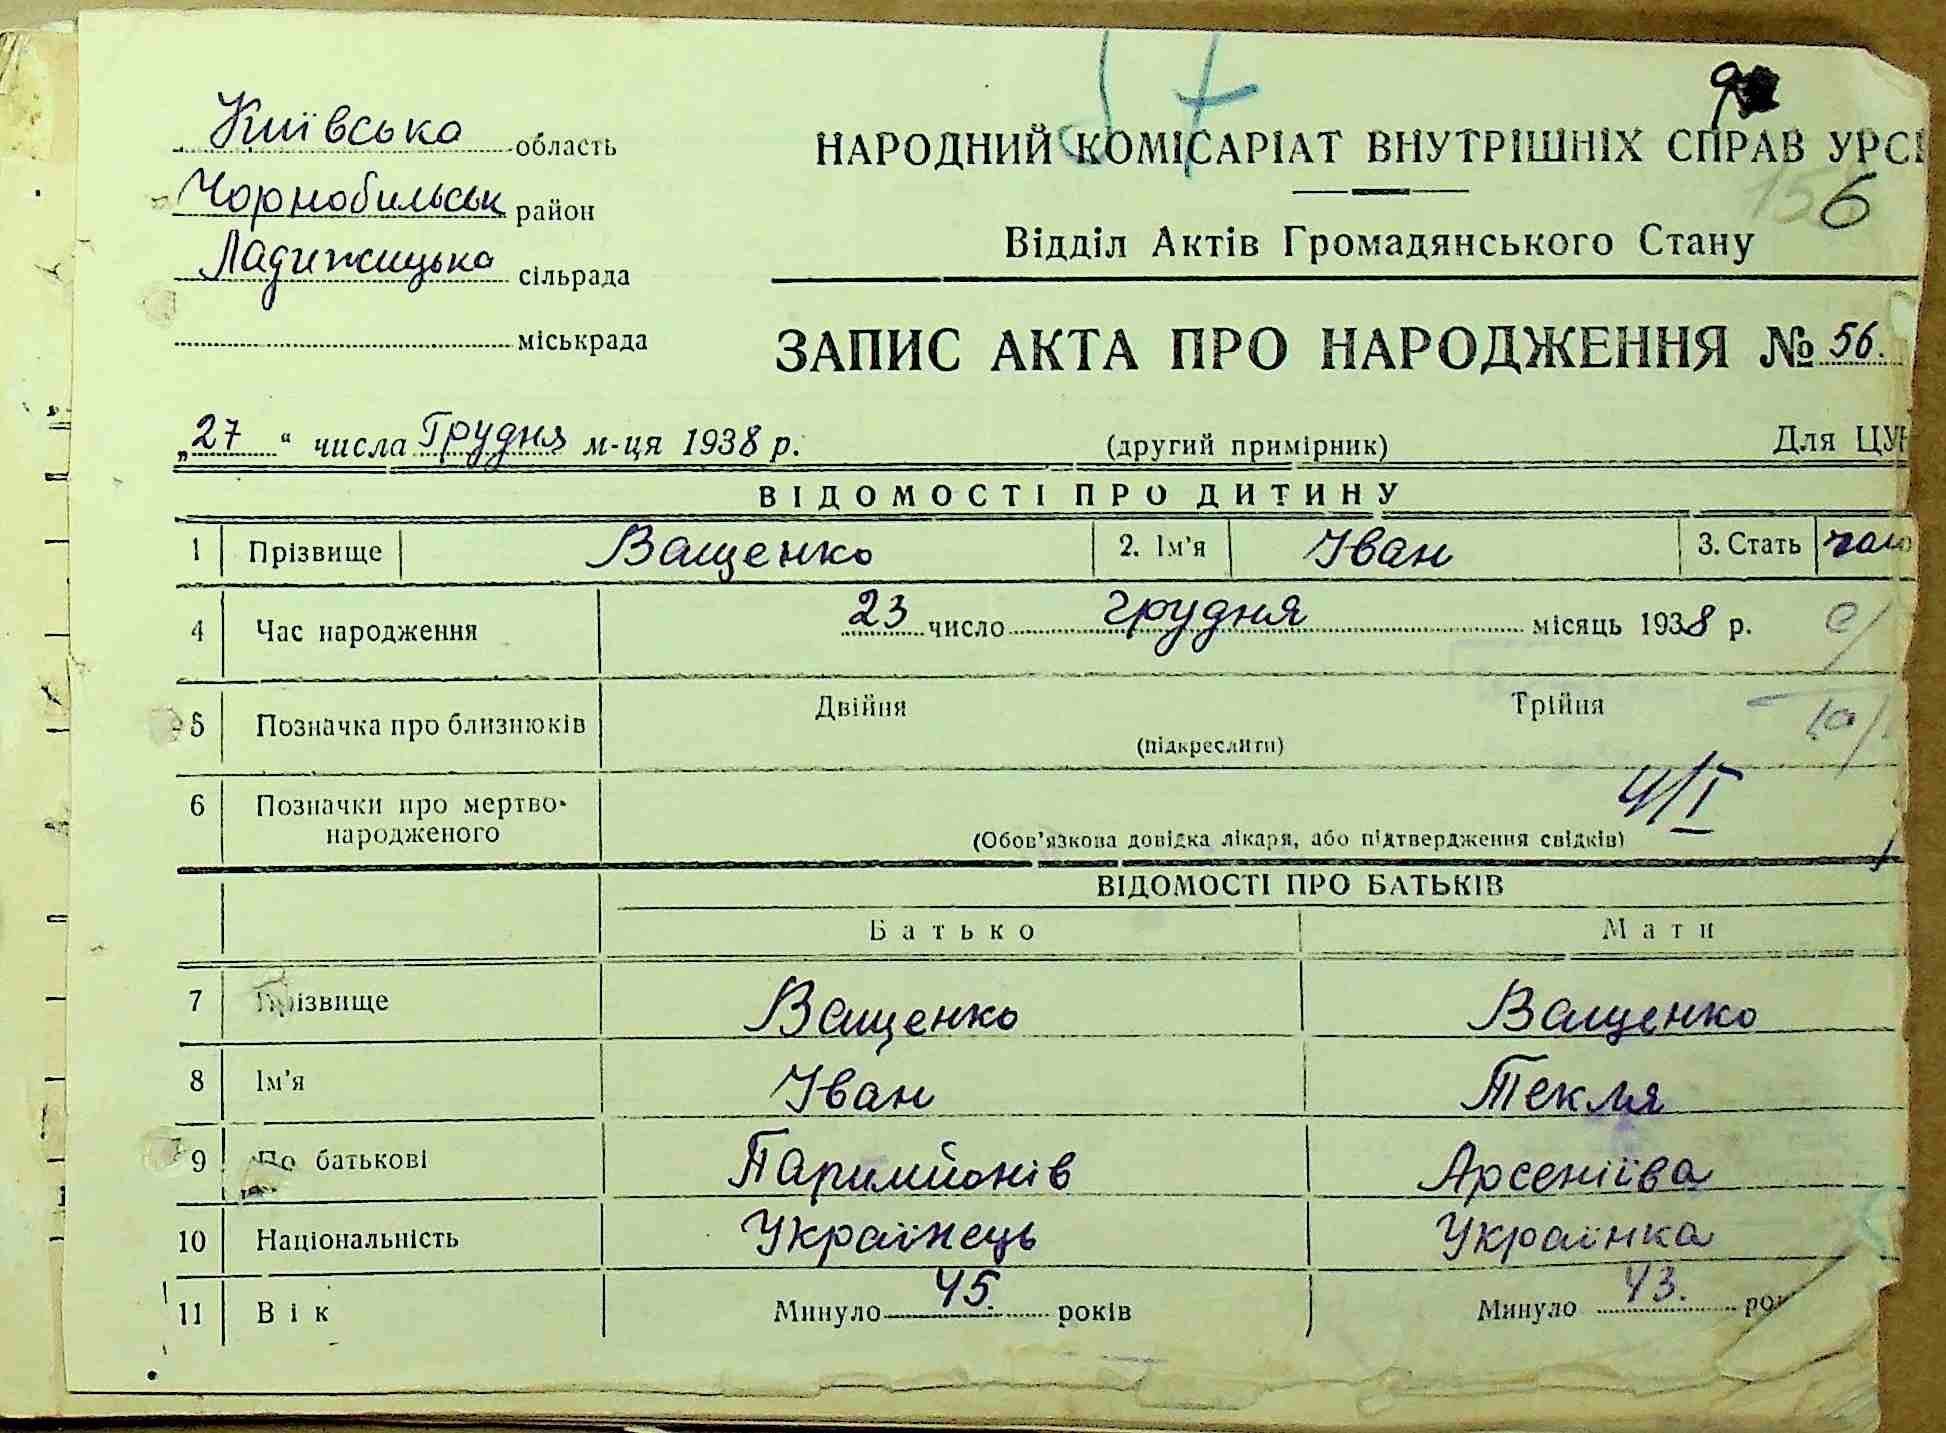 Київська область
Чорнобильськ район
Ладижицька сільрада
міськрада
НАРОДНИЙ КОМІСАРІАТ ВНУТРІШНІХ СПРАВ УРС
6
Відділ Актів Громадянського Стану
ЗАПИС АКТА ПРО НАРОДЖЕННЯ № 56.
„27“ числа Грудня м-ця 1938 р. (другий примірник) Для ЦУ
ВІДОМОСТІ ПРО ДИТИНУ
1 Прізвище Ващенко 2. Ім'я Іван 3. Стать чоло
4 Час народження 23 число грудня місяць 1938 р.
5 Позначка про близнюків Двійня Трійня
(підкреслити)
6 Позначки про мертво-
народженого
4/I
(Обов'язкова довідка лікаря, або підтвердження свідків)
ВІДОМОСТІ ПРО БАТЬКІВ
Батько Мати
7 Прізвище Ващенко Ващенко
8 Ім'я Іван Текля
9 По батькові Паримйонів Арсеніїва
10 Національність Українець Українка
11 Вік Минуло 45. років Минуло 43. ро